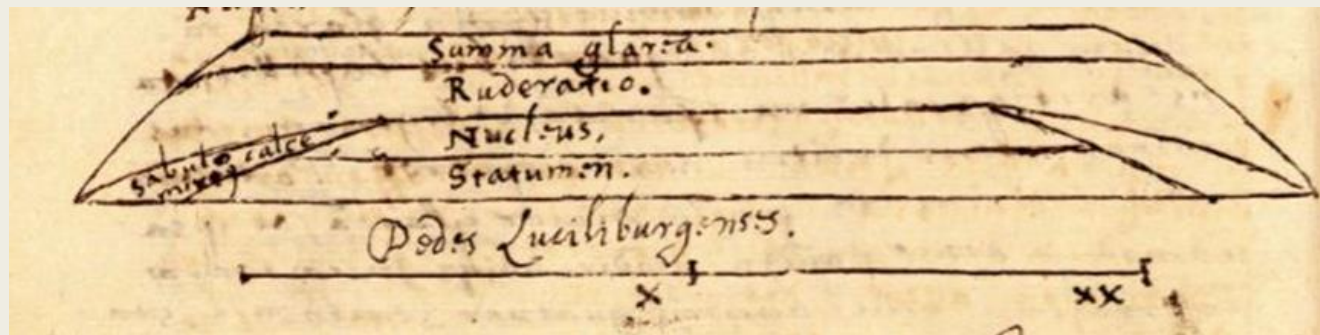 Summa glarea.
Ruderatio.
Nucleus.
Statumen.
Sabulo calce
mixto
Pedes Luciliburgenses.
X XX